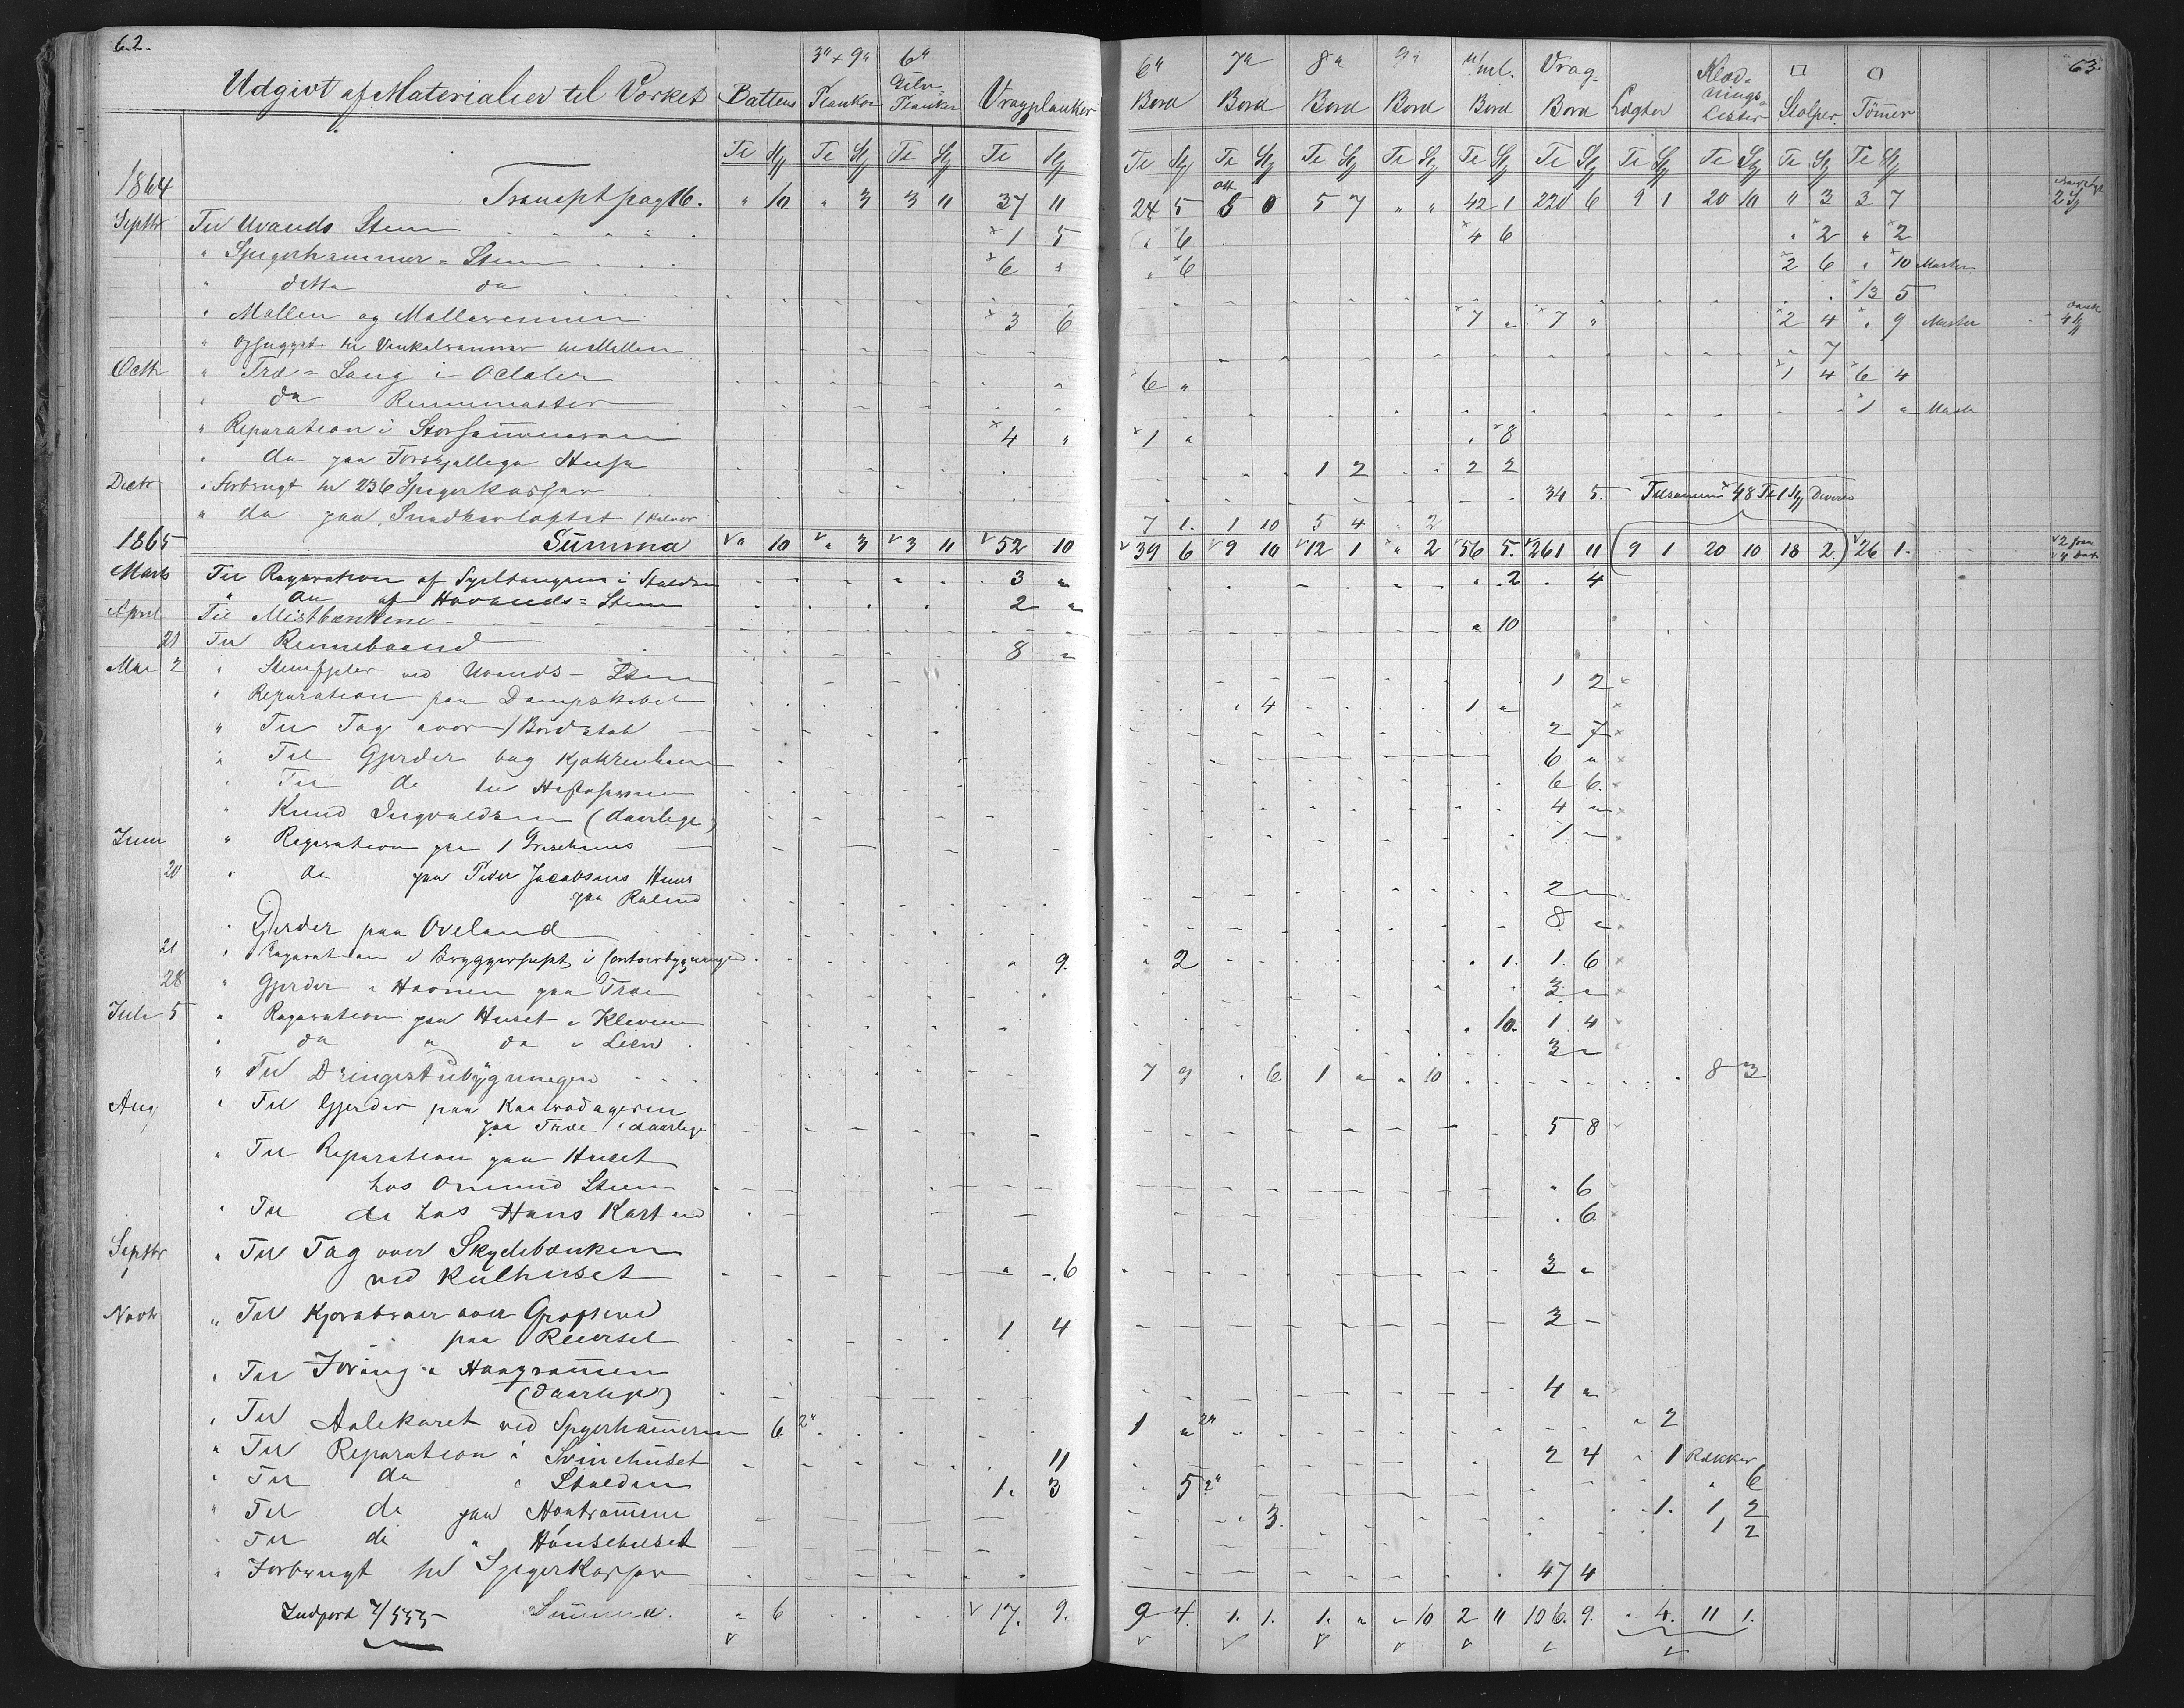 62.
63.
Udgivt af Materialier til Værket Battens 3" x 9" Planker 6" Gulv Planker Vragplanker 6" Bord 7" Bord 8" Bord 9" Bord u/ml. Bord Vrag- Bord Lægter Klæd- nings- Lister □ Stolper ○ Tömer
Tl Stj Tl Stj Tl Stj Tl Stj Tl Stj Tl Stj Tl Stj Tl Stj Tl Stj Tl Stj Tl Stj Tl Stj Tl Stj Tl Stj
1864 Transpt pag 16. " 10 " 3 3 11 37 11 24 5 5 0 5 7 " " 42 1 220 6 9 1 20 10 " 3 3 7 2 Stj
Septbr Til Uvands Stem 1 5 " 6 4 6 " 2 " 2
" Spigerhammer = Stem 6 " " 6 2 6 " 10 Master
" ditto do 13 5
" Møllen og Møllerennen 3 6 7 " 7 " 2 4 " 9 Master 4 Stj
" til Vinkelrammer 7
Octbr " Træ = Laug i Oddalen 6 " 1 4 6 4
" do Rennemaster 1 " Master
" Reparation i 4 " 1 " " 8
" do paa Forskjellige Huse 1 2 2 2
Decbr " Forbrugt til 236 Spigerkasser 34 5. Tilsammen 48 Tl 1 Stj Diverse
" do paa Snedkerloftet 7 1. 1 10 5 4 " 2
1865 Summa " 10 " 3 3 11 52 10 39 6 9 10 12 1 " 2 56 5. 261 11 9 1 20 10 18 2 26 1.
Marts Til Reparation af i Stalden 3 " " 2 " 4
" do af Hovands = Stem 2 "
April Til Mistbænkene " 10
21 Til Rennebaand 8 "
Mai 2 " Stemfjeler ved Uvands - Stem 1 2
" Reparation paa Dampskibet " 4 1 "
" Til Tag over 1 Bordstab 2 7
" Til Gjerder bag Kjøkkenhaven 6 "
" Til do til 6 6.
" Knud Ingvaldsen (daarlige) 4 "
Juni " Reparation paa 1 1 "
20 " do paa Peder Jacobsens Huus
paa Rolend 2 "
" Gjerder paa Oveland 8 "
21 " Reparation i Bryggerhuset i Contoirbygningen " 9. " 2 " 1. 1. 6
28 " Gjerder i Havnen paa Træe 3 "
Juli 5 " Reparation paa Huset i Kleven " 10. 1 4
" do " do i Lien 3 "
" Til Drengestubygningen 7 9 " 6 1 " " 10 8 3
Aug " Til Gjerder paa
paa Træe (daarlige 5 8
" Til Reparation paa Huset
hos Omund Steen " 6
" Til do hos Hans " 6
Septbr " Til Tag over Skydebænken
ved Kulhuset " 6 3 "
Novbr " Til Kjørebroer over Grøfterne
paa Reiersel 1 4 2 "
" Til Foring i
(daarlige) 4 "
" Til Aalekaret ved Spigerhameren 6 2" 1 " 2" " 2
" Til Reparation i Svinehuset 11 2 4 " 1 Rækker
" Til do i Stalden 1. 3 5 2" " 6
" Til do paa " 3. 1. 1 2
" Til do " Hönsehuset 1 2
" Forbrugt til Spigerkasser 47 4
Indført Summa. " 6 17. 9. 9 4. 1. 1. 1. " " 10 2 11 106. 9. " 4. 11 1.